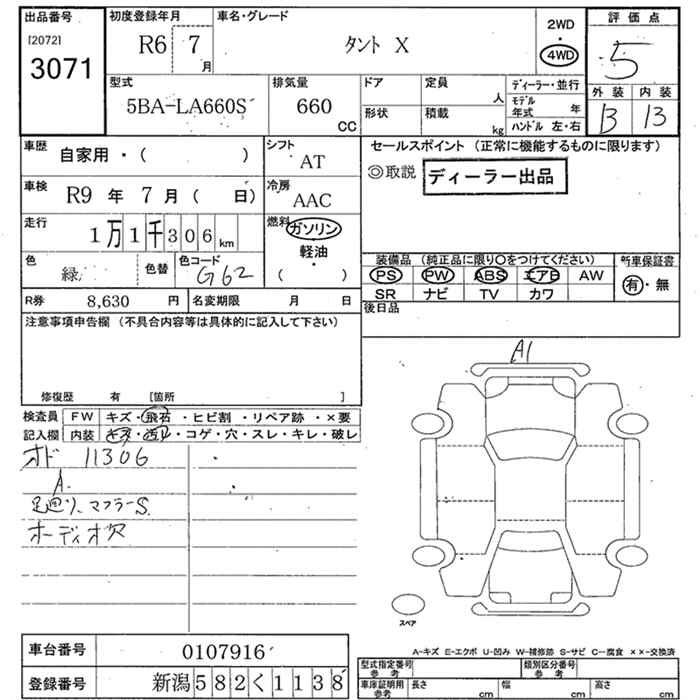 出品番号
[2072]
3071
初度登録年月
R6 7
月
車名・グレード
タント X
2WD
・
4WD
評価点
5
型式
5BA-LA660S
排気量
660
CC
ドア
形状
定員
人
積載
kg
ディーラー・並行
モデル年式 年
ハンドル 左・右
外装 内装
B B
車歴
自家用・( )
シフト
AT
車検
R9 年 7 月 ( 日)
冷房
AAC
走行
1万1千306km
燃料
ガソリン
軽油
( )
色
緑
色替
色コード
G62
R券 8,630 円
名変期限 月 日
セールスポイント (正常に機能するものに限ります)
◎取説 ディーラー出品
装備品 (純正品に限り○をつけてください)
PS PW ABS エアB AW
SR ナビ TV カワ
新車保証書
有・無
後日品
注意事項申告欄 (不具合内容等は具体的に記入して下さい)
修復歴 有 [箇所 ]
検査員
記入欄
FW キズ・飛石・ヒビ割・リペア跡・×要
内装 キズ・凹ル・コゲ・穴・スレ・キレ・破レ
オド 11306
A
足廻り、マフラーS
オーディオ穴
A1
スペア
A-キズ E-エクボ U-凹み W-補修跡 S-サビ C-腐食 ××-交換済
車台番号 0107916
登録番号 新潟582く1138
型式指定番号
参考
類別区分番号
参考
車庫証明用
参考
長さ cm 幅 cm 高さ cm